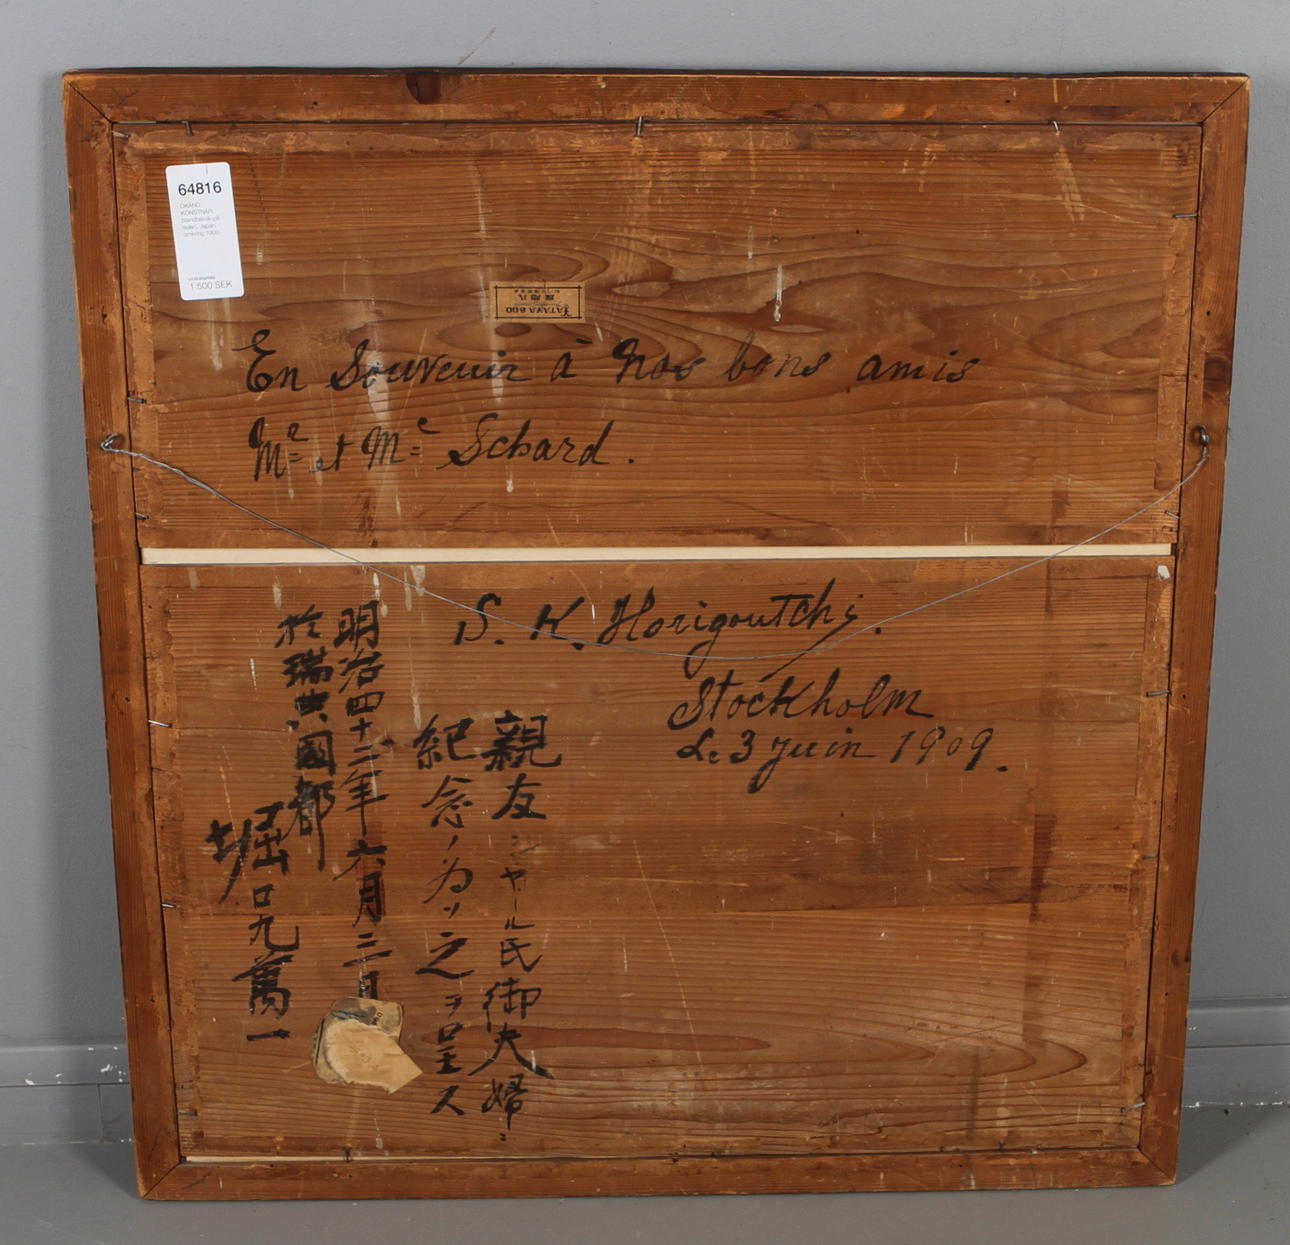 64816
OKÄND
KONSTNÄR,
1 500 SEK
En Souvenir à nos bons amis
Mr et Me Schard.
S. K. Horigoutchi.
Stockholm
Le 3 Juin 1909.
親友シヤール氏御夫婦ニ
紀念ノ為ツ之ヲ呈ス
明治四十二年六月三日
於瑞典國都
堀口九萬一